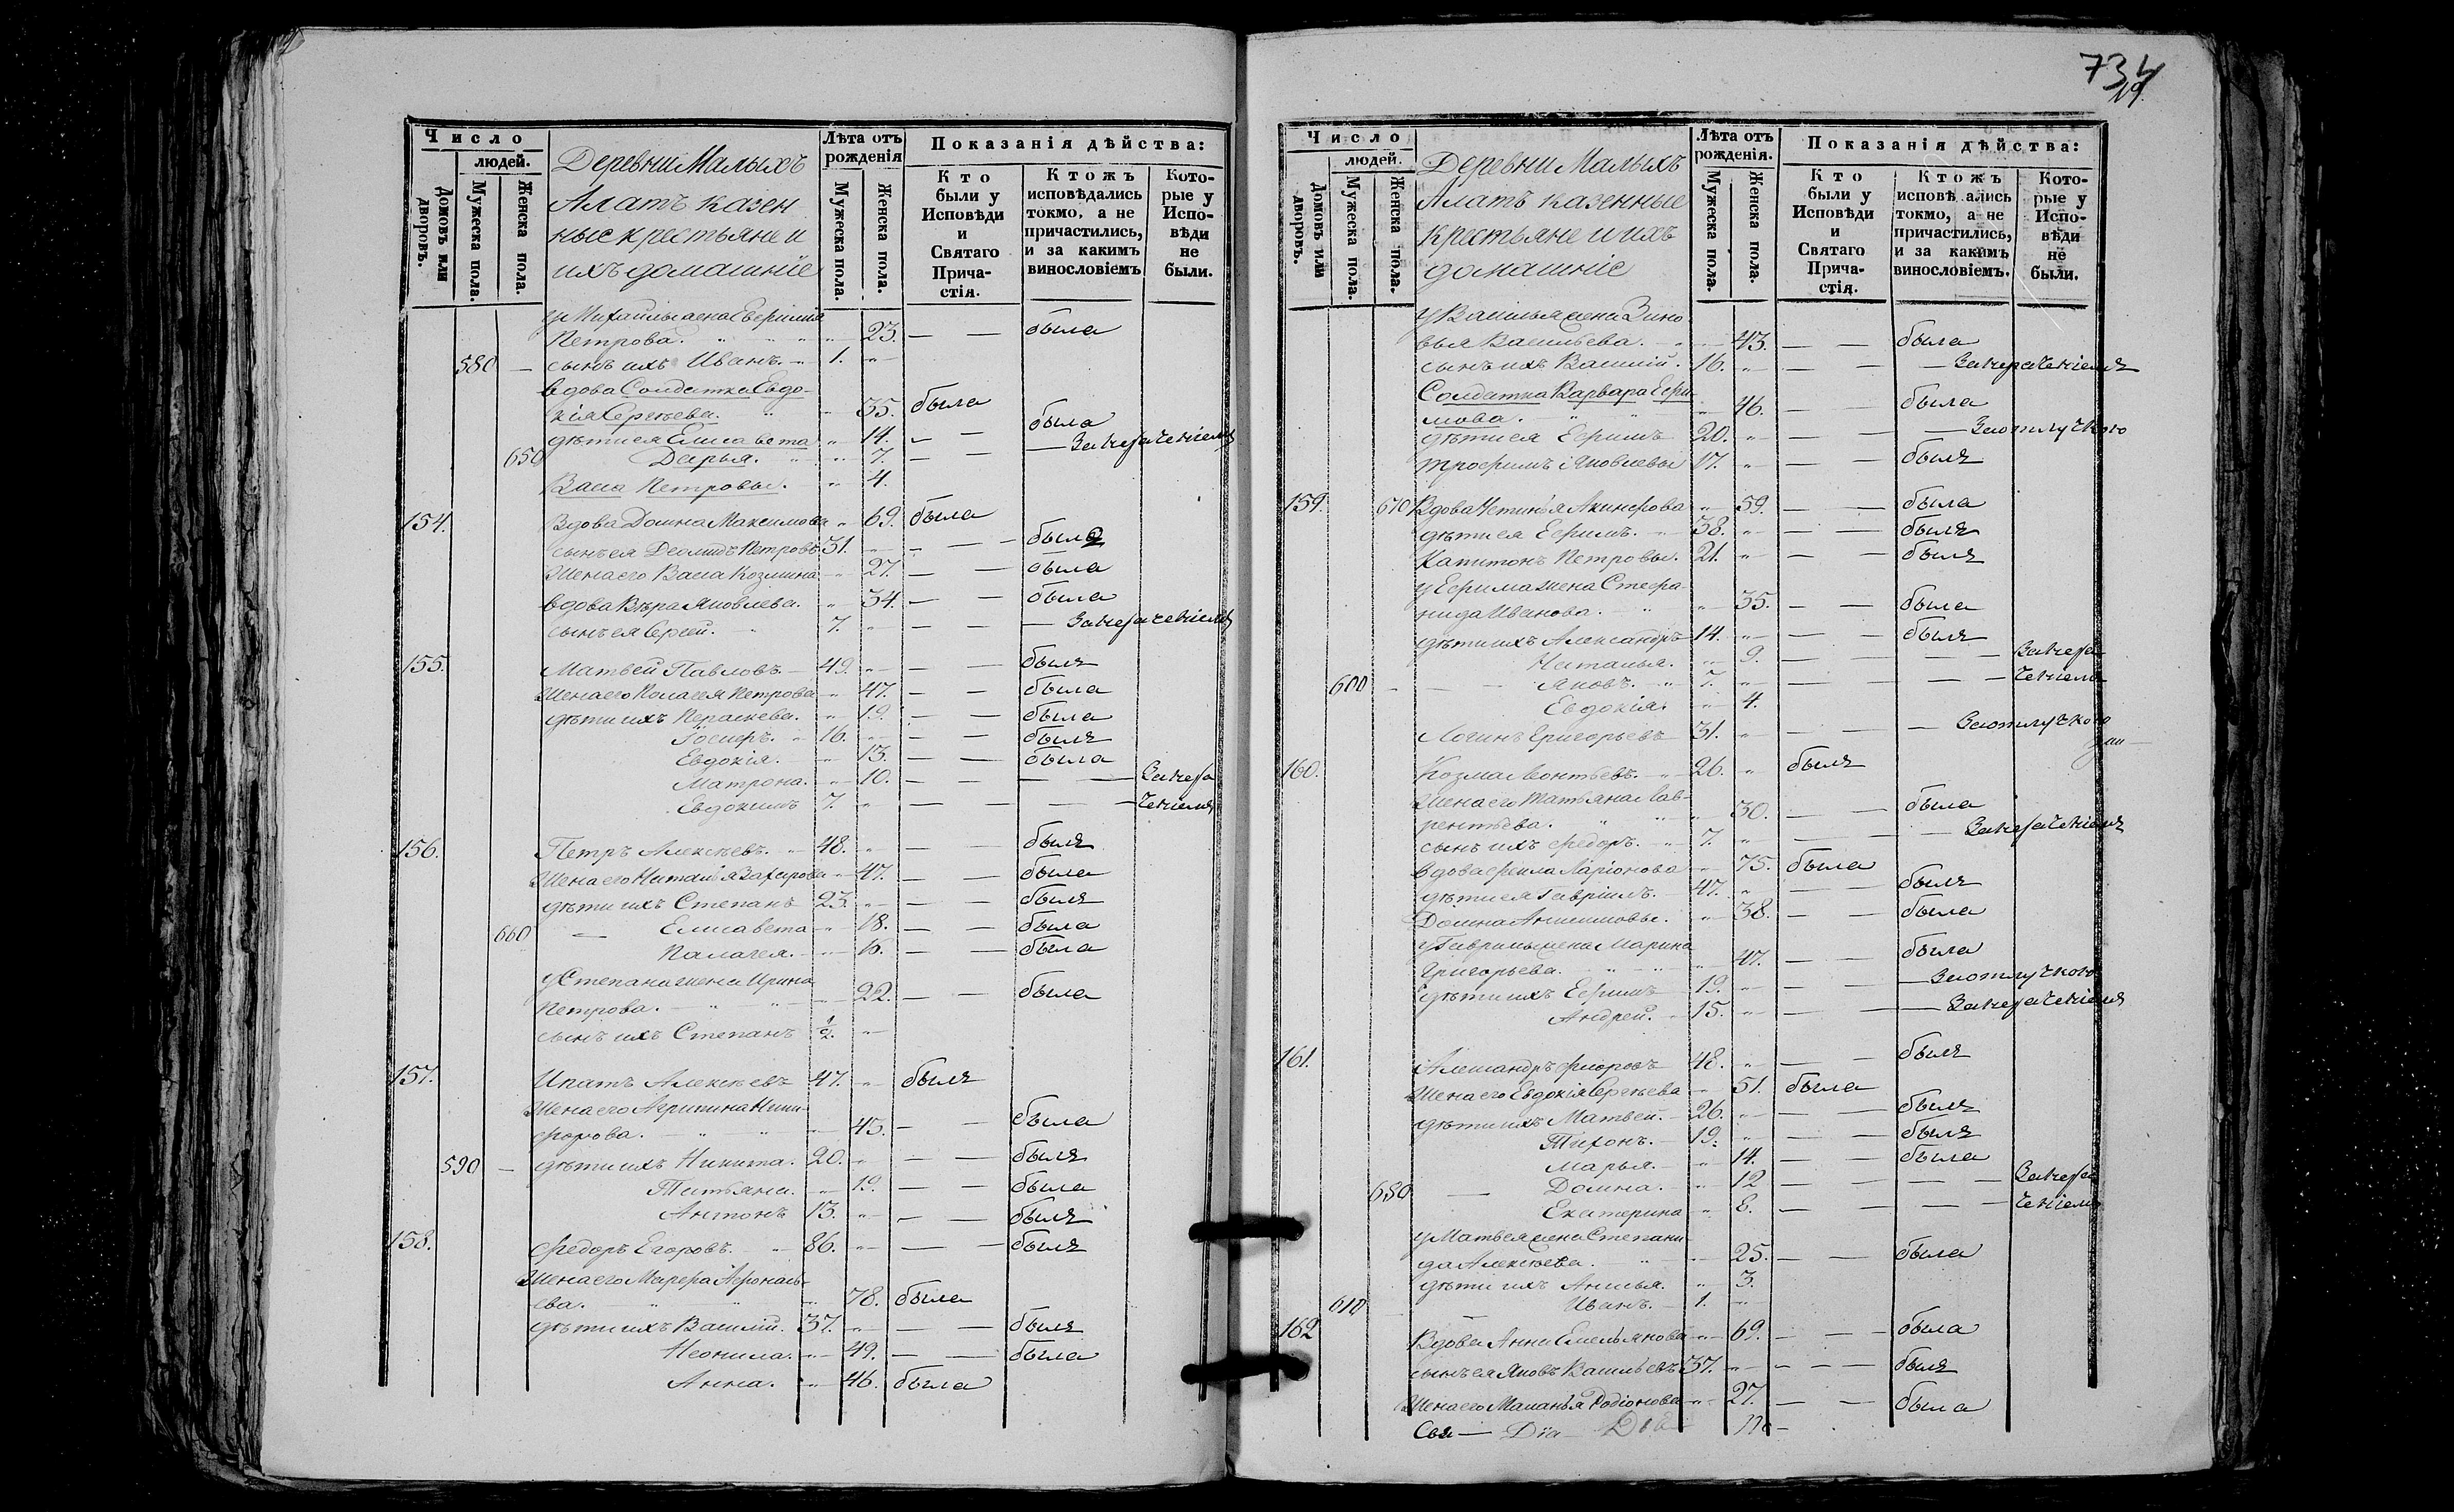 Число
людей.
Домовъ или дворовъ.
Мужеска пола.
Женска пола.
Деревни Малыхъ
Алатъ казен
ныс крестьяне и
ихъ домашніе
Лѣта отъ
рожденія
Мужеска пола.
Женска пола.
Показанія дѣйства:
Кто
были у
Исповѣди
и
Святаго
Прича-
стія.
Ктожъ
исповѣдались
токмо, а не
причастились,
и за какимъ
винословіемъ
Кото-
рые у
Испо-
вѣди
не
были.
у Михайлы жена Евфимія
Петрова. 23. — — была
580 — сынъ ихъ Иванъ. 1.
вдова Солдатка Евдо-
кія Сергѣева. 35. была
дѣти ея Елисавета 14. — — была
650 Дарья. 7. — — — За нераченіемъ
Васса Петровы. 4.
154. Вдова Домна Максимова 69. была
сынъ ея Деомидъ Петровъ 31. — — былъ
Жена его Васса Козмина 27. — — была
вдова Вѣра Яковлева. 34. — — была
сынъ ея Сергій. 7. — — — За нераченіемъ
155. Матвей Павловъ. 49. — — былъ
Жена его Палагея Петрова 47. — — была
дѣти ихъ Параскева. 19. — — была
Іосифъ. 16. — — былъ
Евдокія. 13. — — была
Матрона. 10. — — — — За нера
Евдокимъ 7. — — — — ченіемъ
156. Петръ Алексѣевъ. 48. — — былъ
Жена его Наталья Захарова 47. — — была
дѣти ихъ Степанъ 23. — — былъ
660 — Елисавета 18. — — была
Палагея. 16. — — была
у Степана жена Ирина
Петрова. 22. — — была
сынъ ихъ Степанъ ½.
157. Ипатъ Алексѣевъ 47. былъ
Жена его Агрипина Ники-
форова. 45. — — была
590 — дѣти ихъ Никита. 20. — — былъ
Татьяна. 19. — — была
Антонъ 13. — — былъ
158. Федоръ Егоровъ. 86. — — былъ
Жена его Марфа Афонась-
ева. 78. была
дѣти ихъ Василій. 37. — — былъ
Неонила. 49. — — была
Анна. 46. была
734
Число
людей.
Домовъ или дворовъ.
Мужеска пола.
Женска пола.
Деревни Малыхъ
Алатъ казенные
крестьяне и ихъ
домашніе
Лѣта отъ
рожденія.
Мужеска пола.
Женска пола.
Показанія дѣйства:
Кто
были у
Исповѣди
и
Святаго
Прича-
стія.
Ктожъ
исповѣдались
токмо, а не
причастились,
и за какимъ
винословіемъ.
Кото-
рые у
Испо-
вѣди
не
были.
у Василья жена Зино
вья Васильева. 43. — — была
сынъ ихъ Василій. 16. — — — За нераченіемъ
Солдатка Варвара Ефи-
мова. 46. — — была
дѣти ея Ефимъ 20. — — — За отлучкою
Трофимъ Яковлевы 17. — — былъ
159. 670 Вдова Устинья Акинфова 59. — — была
дѣти ея Ефимъ. 38. — — былъ
Капитонъ Петровы. 21. — — былъ
у Ефима жена Стефа-
нида Иванова. 35. — — была
дѣти ихъ Александръ 14. — — былъ
Наталья. 9. — — — — За нера
600 — — — Яковъ. 7. — — — — ченіемъ
Евдокія. 4.
Логинъ Григорьевъ 31. — — — За отлучкою
160. Козма Леонтьевъ. 26. былъ
Жена его Татьяна Лав-
рентьева. 30. — — была
сынъ ихъ Федоръ. 7. — — — За нераченіемъ
вдова Фекла Ларіонова 75. была
дѣти ея Гавріилъ. 47. — — былъ
Домна Анисимовы. 38. — — была
у Гаврилы жена Марина
Григорьева. 47. — — была
дѣти ихъ Ефимъ 19. — — — За отлучкою
Андрей. 15. — — — За нераченіемъ
161. Александръ Флоровъ 48. — — былъ
Жена его Евдокія Сергѣева 51. была
дѣти ихъ Матвей. 26. — — былъ
Тихонъ. 19. — — былъ
Марья. 14. — — была
680 — Домна. 12 — — — — За нера
Екатерина 8. — — — — ченіемъ
у Матвея жена Степани-
да Алексѣева. 25. — — была
дѣти ихъ Анисья. 3.
610 — Иванъ. 1.
162 Вдова Анна Емельянова 69. — — была
сынъ ея Яковъ Васильевъ 37. — — былъ
Жена его Маланья Родіонова 27. — — была